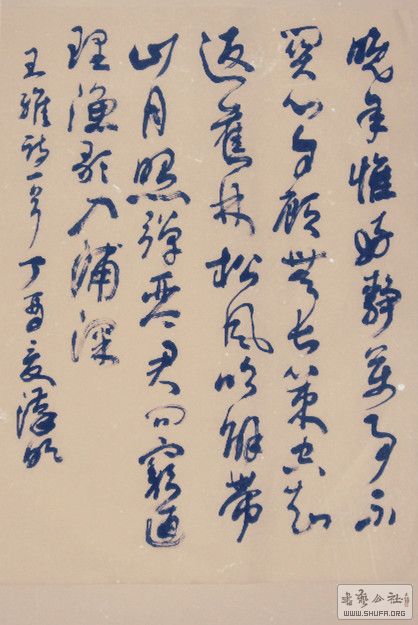 晚年惟好靜萬事不
關心自顧無長策空知
返舊林松風吹解帶
山月照彈琴君問窮通
理漁歌入浦深
王維詩一首丁酉夏
書藝公社
WWW.SHUFA.ORG